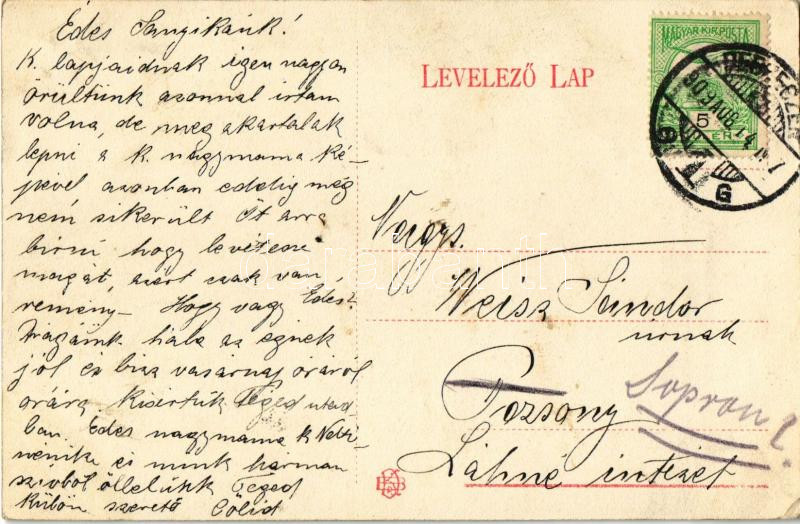 Édes Sanyikánk!
K. lapjaidnak igen nagyon
örültünk azonnal irtam
volna, de meg akartalak
lepni a k. nagymama ké-
pével azonban eddig még
nem sikerült Őt arra
birni hogy levétesse
magát, azért csak van
remény— Hogy vagy Édes?
hála az égnek
jól és bizz vasárnap óráról
órára kisértük Téged utad-
ban. Édes nagymama k.
és mink hárman
szivből ölelünk Téged
külön szerető
LEVELEZŐ LAP
MAGYAR KIR. POSTA
5
DEBRECZEN
909 AUG
G
Nagys.
Weisz Sándor
urnak
Pozsony
Sopron
Lähne intézet